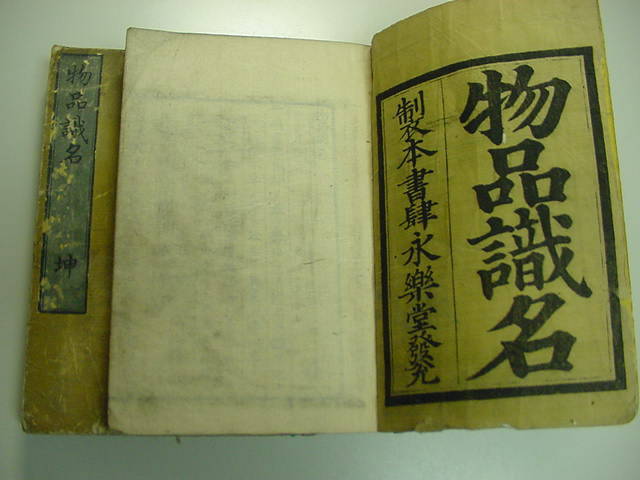 物品識名
製本書肆永樂堂發兌
物品識名 坤